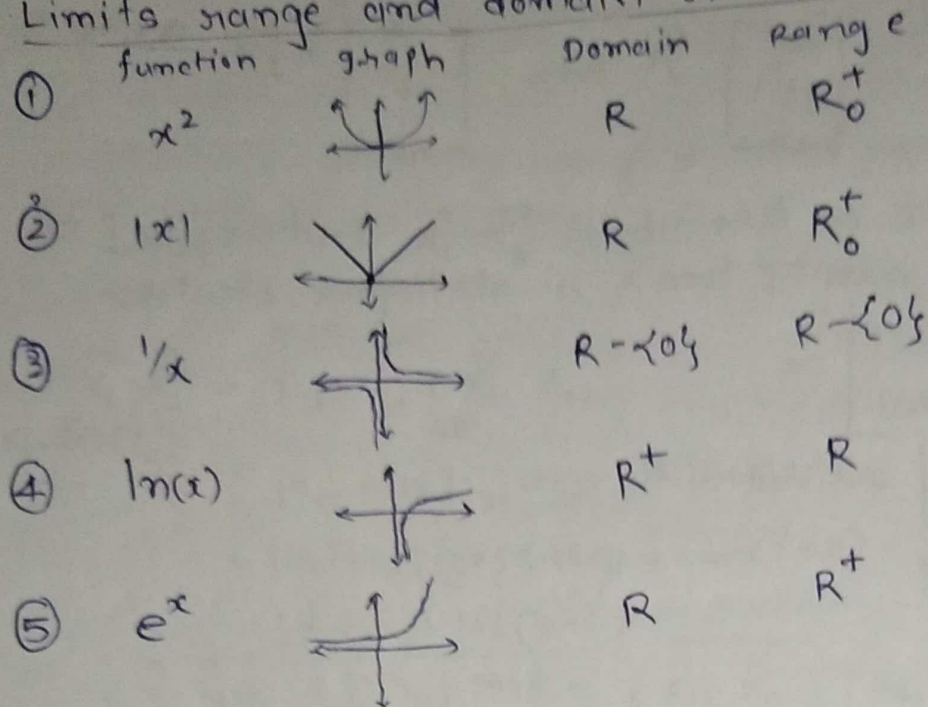 Limits range and domain
function graph Domain Range
① x² R R₀⁺
② |x| R R₀⁺
③ 1/x R-{0} R-{0}
④ ln(x) R⁺ R
⑤ eˣ R R⁺